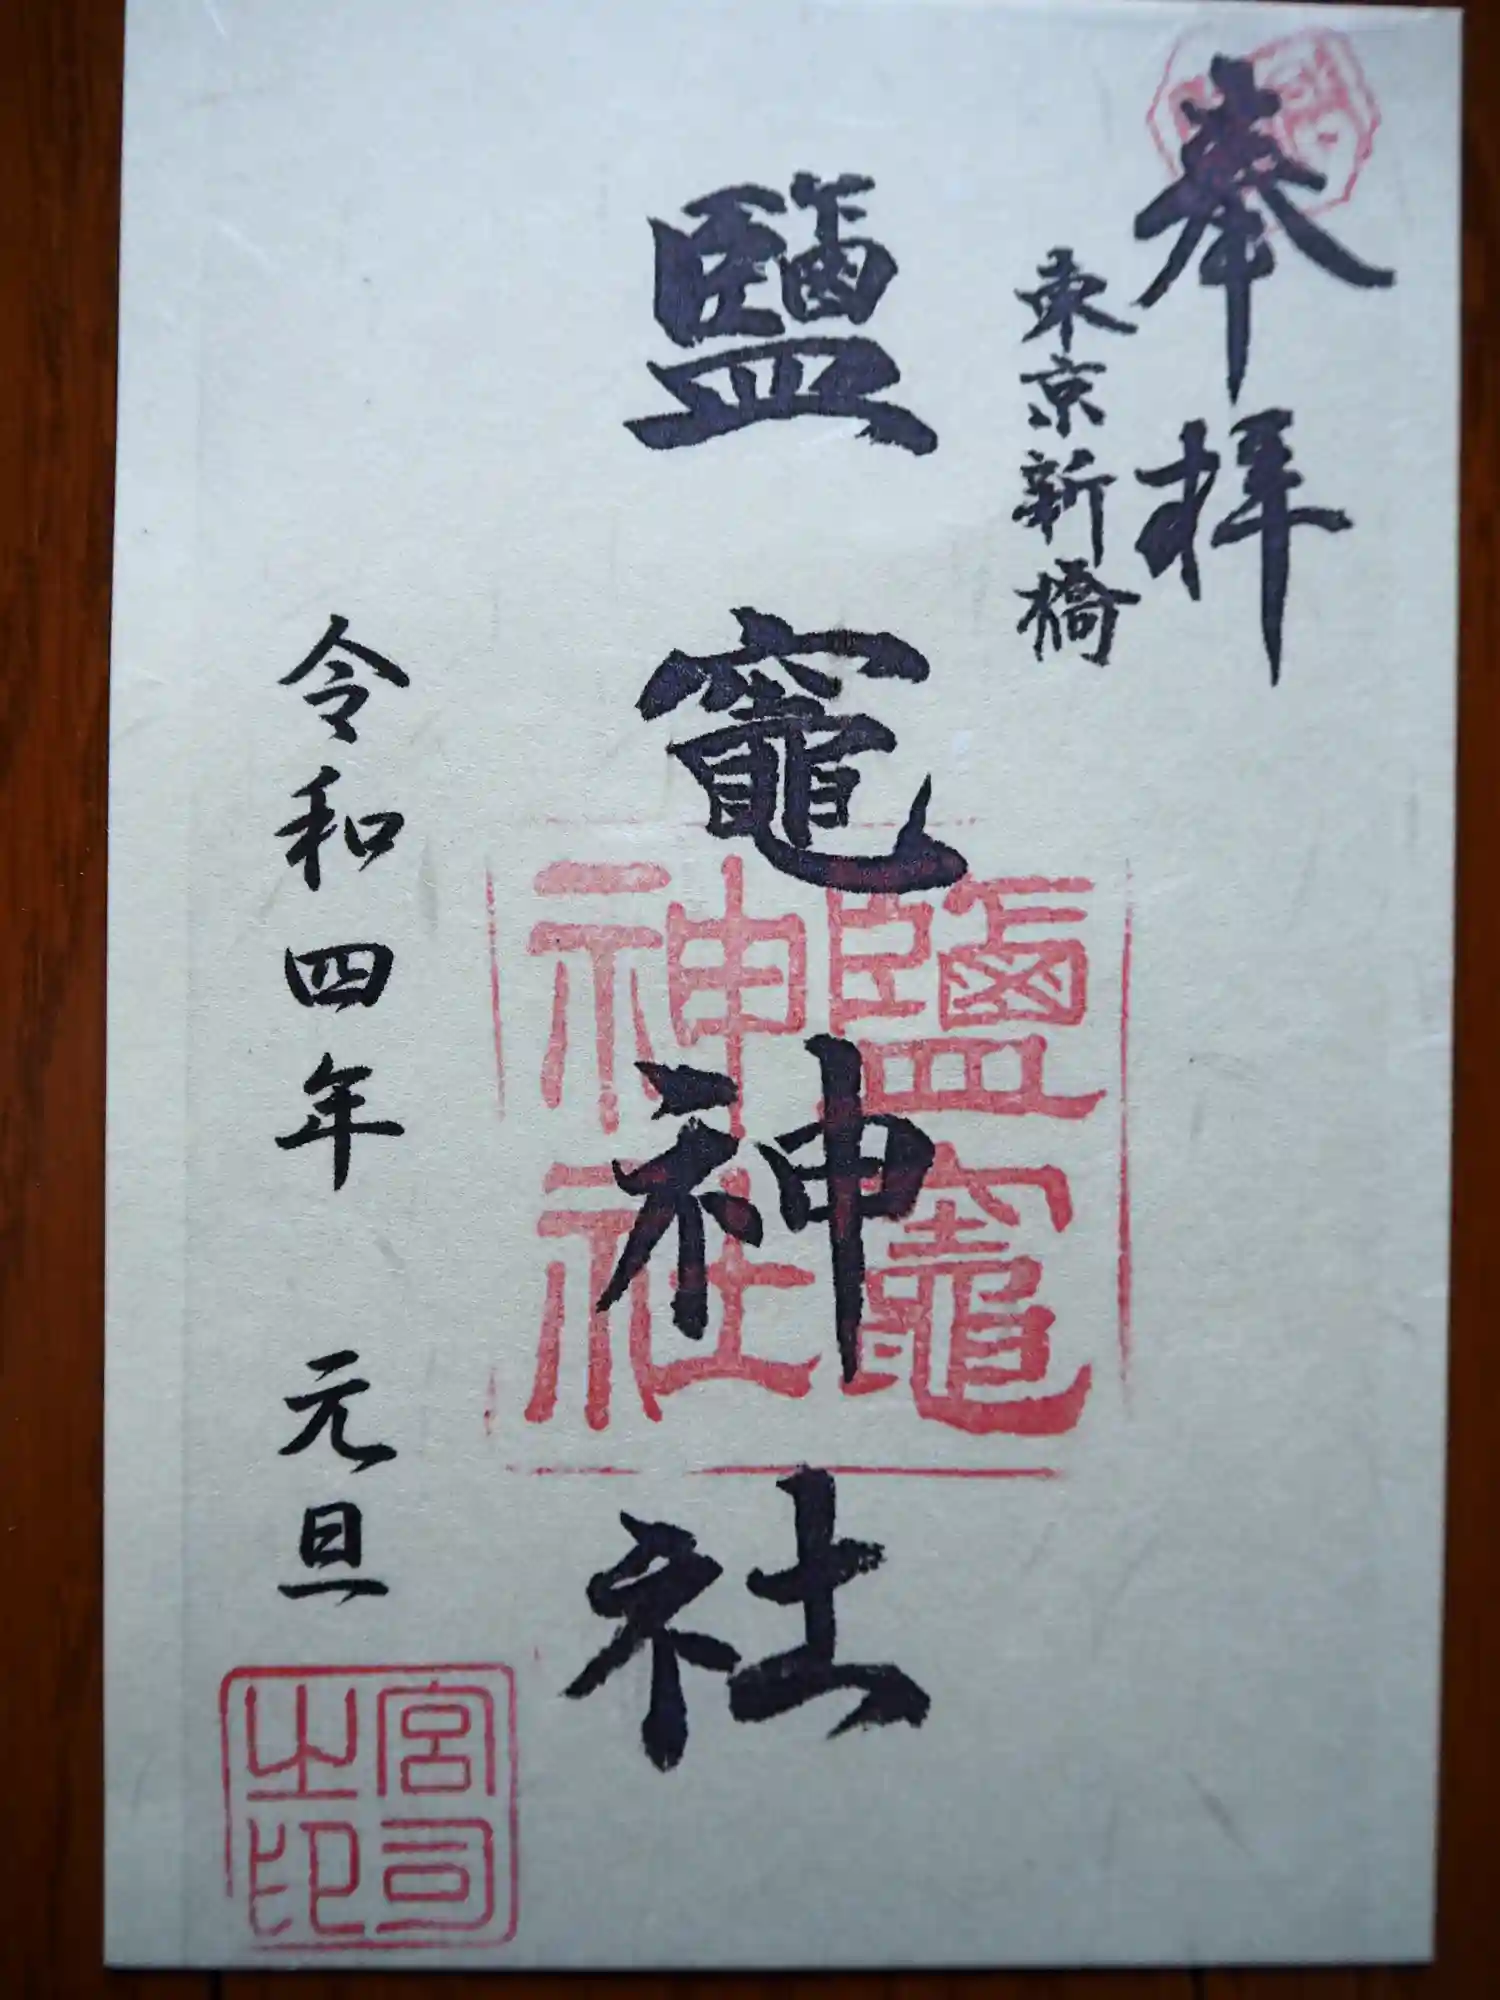 奉拝
東京新橋
鹽竈神社
鹽竈神社
令和四年 元旦
宮司之印